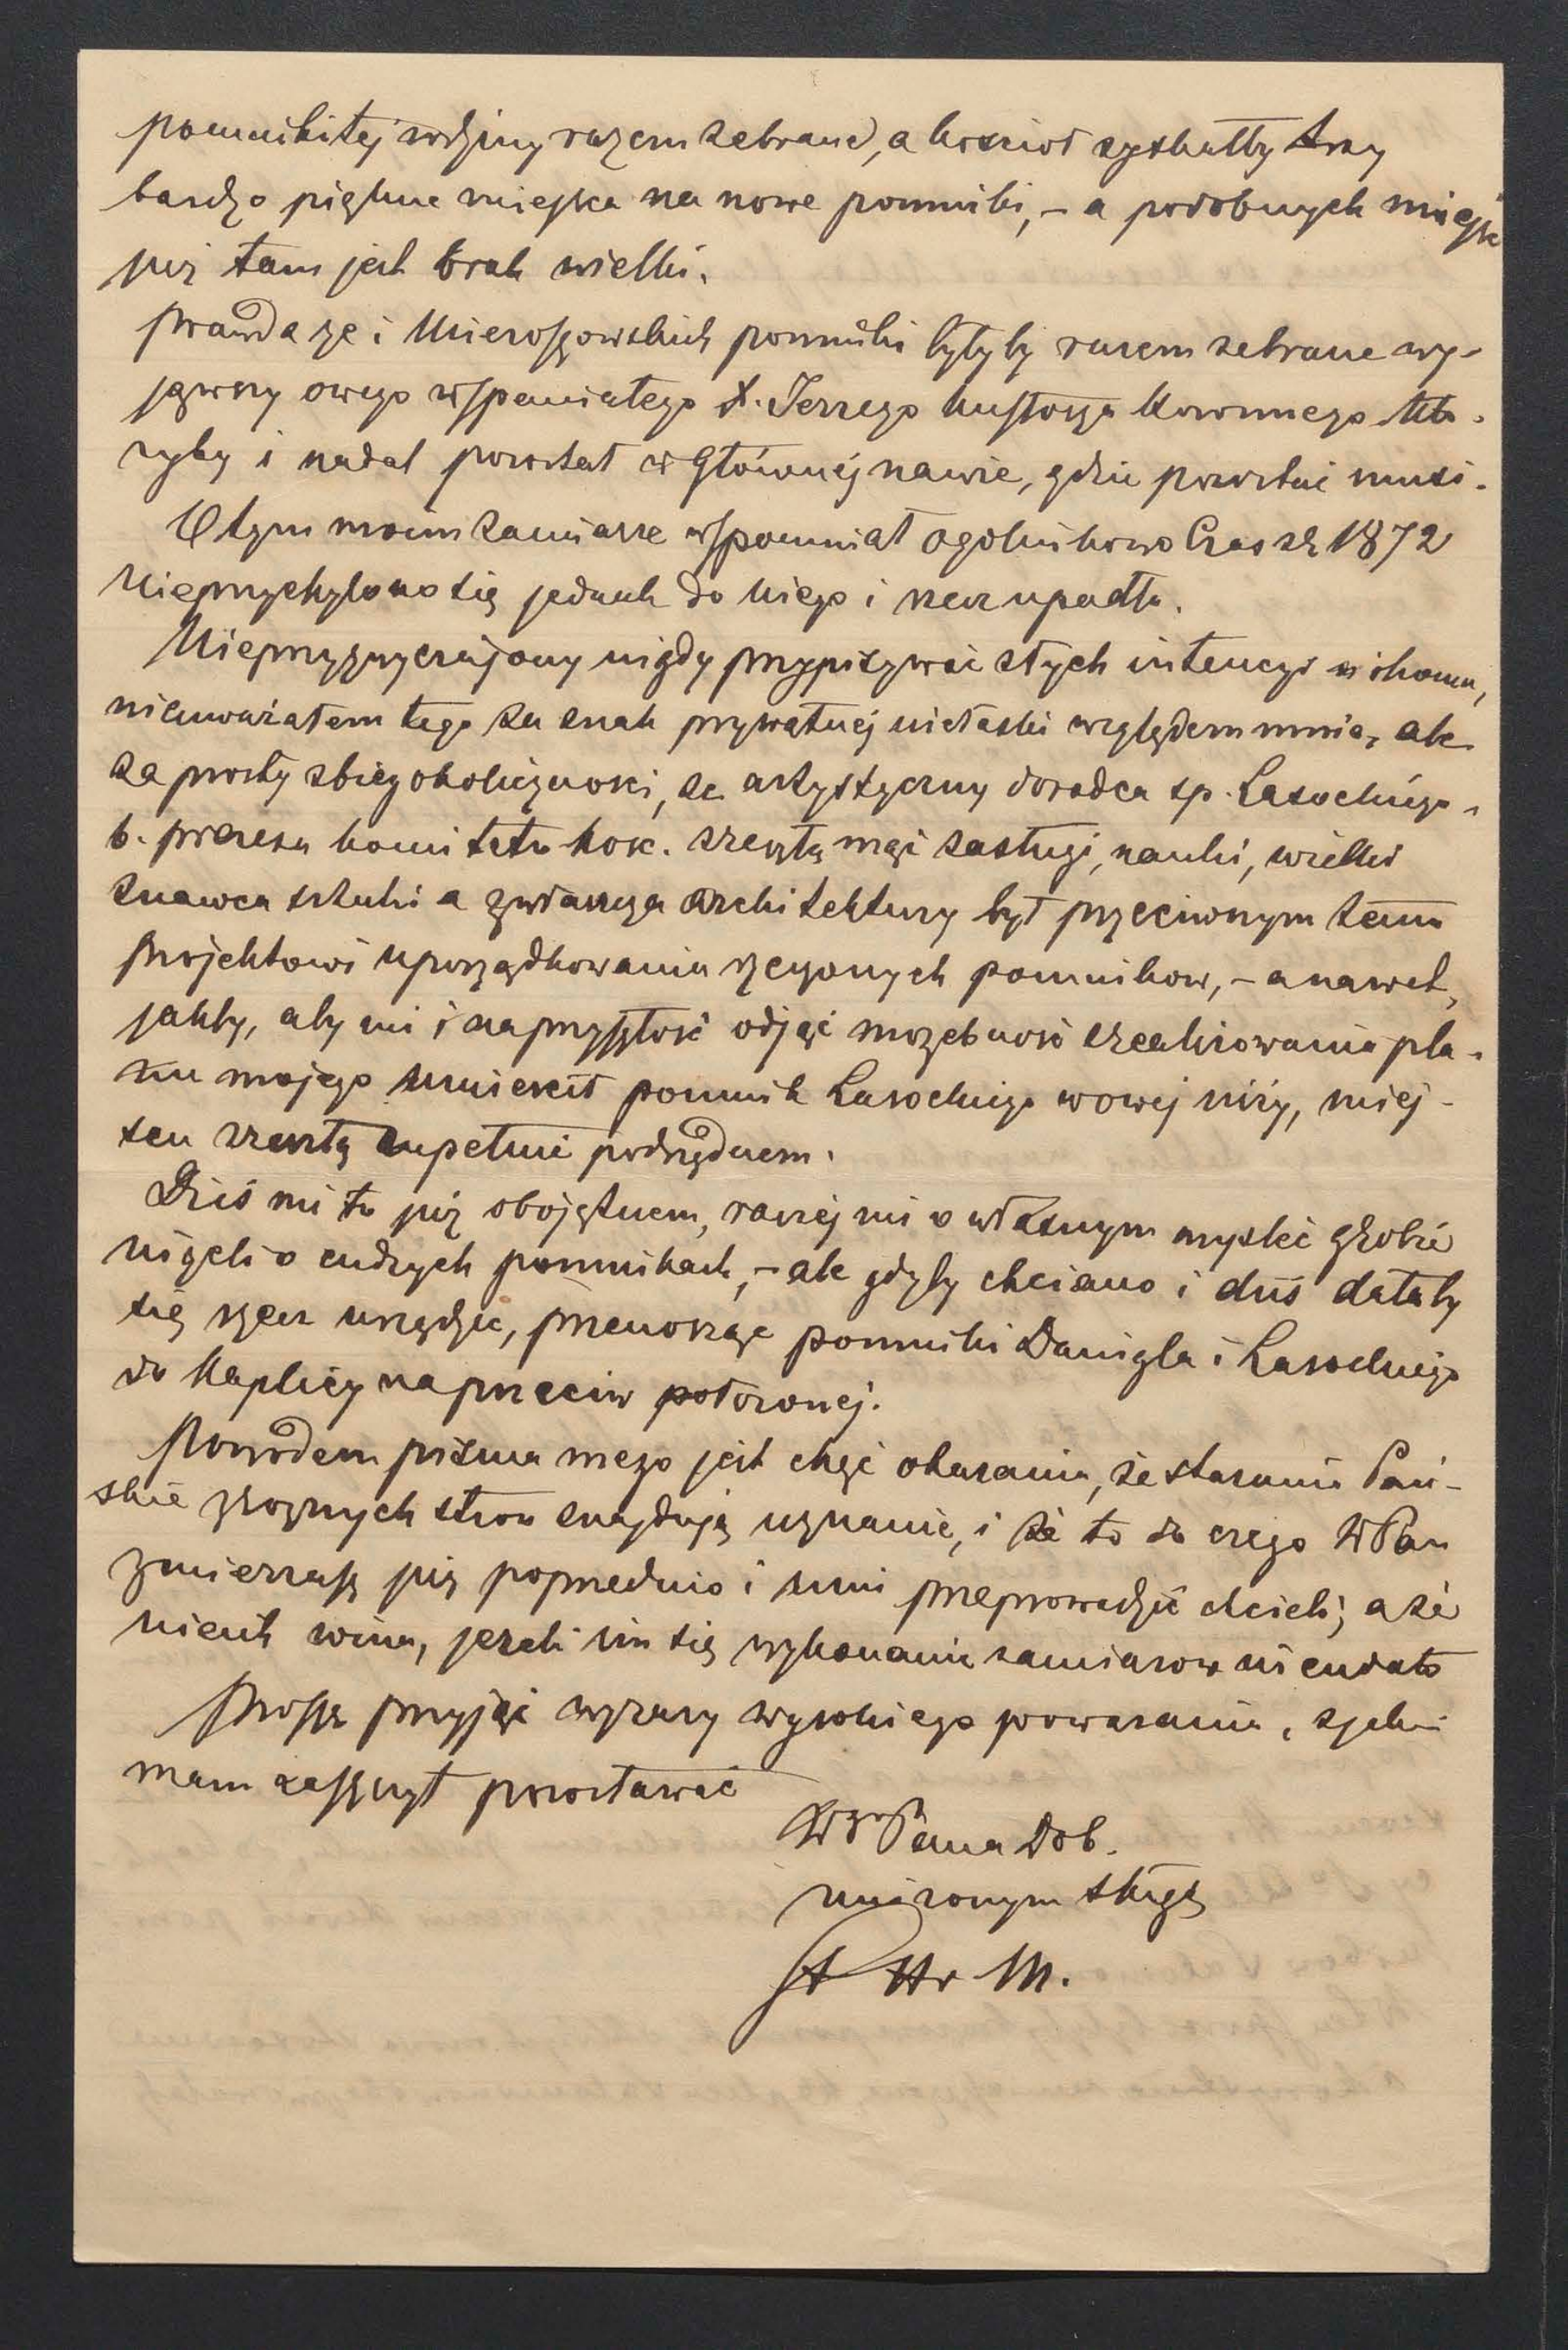 pomniki tej rodziny razem zebrane, a kościoł zyskałby trzy
bardzo piękne miejsca na nowe pomniki, – a podobnych miejsc
już tam jest brak wielki.
Prawda że i Mieroszowskich pomniki byłyby razem zebrane wy-
jąwszy owego wspaniałego X. Jerzego kustosza Koronnego któ-
ryby i nadal pozostał w Głównej nawie, gdzie pozostać musi.
O tym moim zamiarze wspomniał ogolnikowo Czas z r 1872
Nieprzychylono się jednak do niego i rzecz upadła.
Nieprzyzwyczajony nigdy przypisywać złych intencyi nikomu,
nieuważałem tego za znak prywatnej niełaski względem mnie, ale
za prosty zbieg okoliczności, że artystyczny doradca sp. Lasockiego
b. prezesa komitetu kosc. zresztą mąż zasługi, nauki, wielki
znawca sztuki a zwłaszcza architektury był przeciwnym temu
projektowi uporządkowania rzeczonych pomnikow, – a nawet,
jakby, aby mi i na przyszłość odjąć możebność zrealizowania pla-
nu mojego umieścił pomnik Lasockiego w owej niży, miej-
scu zresztą zupełnie podrzędnem.
Dziś mi to już obojętnem, raczej mi o własnym myśleć grobie
niżeli o cudzych pomnikach, – ale gdyby chciano i dziś dałaby
się rzecz urządzić, przenosząc pomniki Danigla i Lasockiego
do Kaplicy naprzeciw położonej.
Powodem pisma mego jest chęć okazania, że starania Pań-
skie z roznych stron znajdują uznanie, i że to do czego WPan
zmierzasz już poprzednio i inni przeprowadzić chcieli; a że
nie ich wina, jezeli im się wykonanie zamiarow nie udało
Proszę przyjąć wyrazy wysokiego poważania, z jakim
mam zaszczyt pozostawać
WgoPana Dob.
uniżonym sługą
St Hr M.